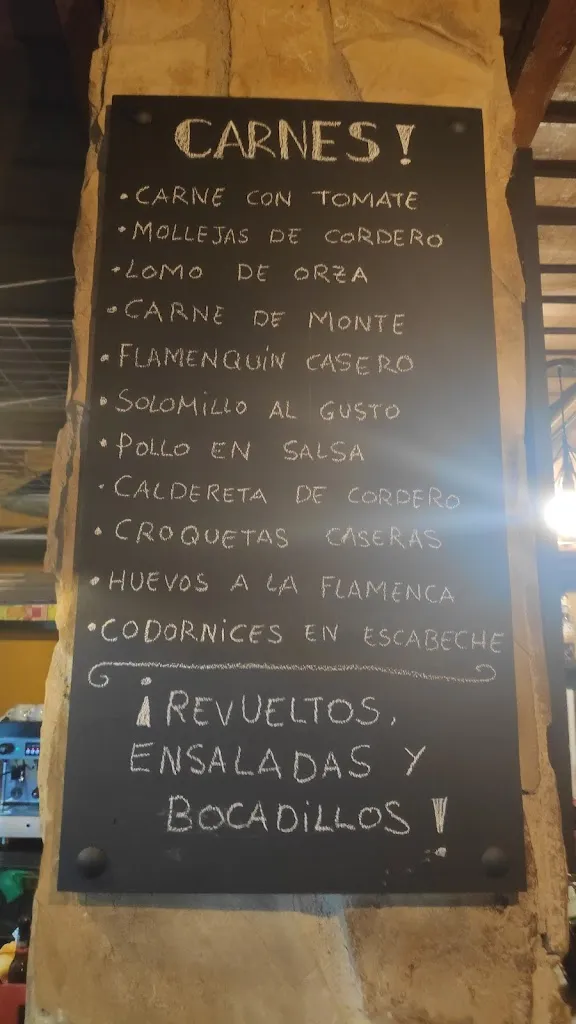 CARNES!
• CARNE CON TOMATE
• MOLLEJAS DE CORDERO
• LOMO DE ORZA
• CARNE DE MONTE
• FLAMENQUÍN CASERO
• SOLOMILLO AL GUSTO
• POLLO EN SALSA
• CALDERETA DE CORDERO
• CROQUETAS CASERAS
• HUEVOS A LA FLAMENCA
• CODORNICES EN ESCABECHE
¡REVUELTOS,
ENSALADAS Y
BOCADILLOS!